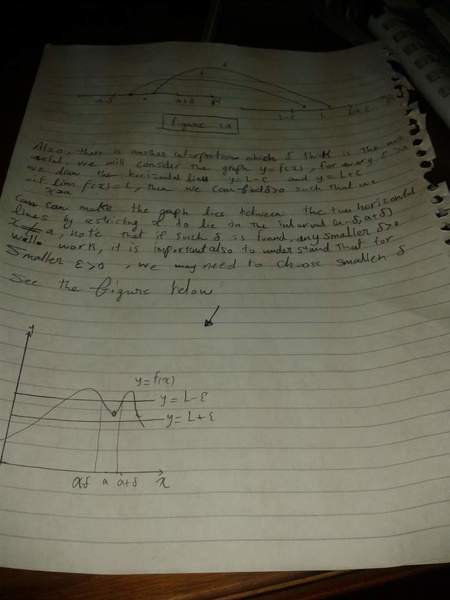 a-δ a a+δ
L-ε L L+ε
figure
Also, there is another interpretation which I think is the most
useful. we will consider the graph y=f(x), for every ε>0
we draw the horizontal lines y=L-ε and y=L+ε
if lim f(x)=L, then we can find δ>0 such that we
x→a
can make the graph lies between the two horizontal
lines by restricting x to lie in the interval (a-δ, a+δ)
x≠a, note that if such δ is found, any smaller δ>0
well work, it is important also to understand that for
Smaller ε>0, we may need to choose smaller δ
See the figure below
y
y=f(x)
y=L-ε
y=L+ε
a-δ a a+δ x